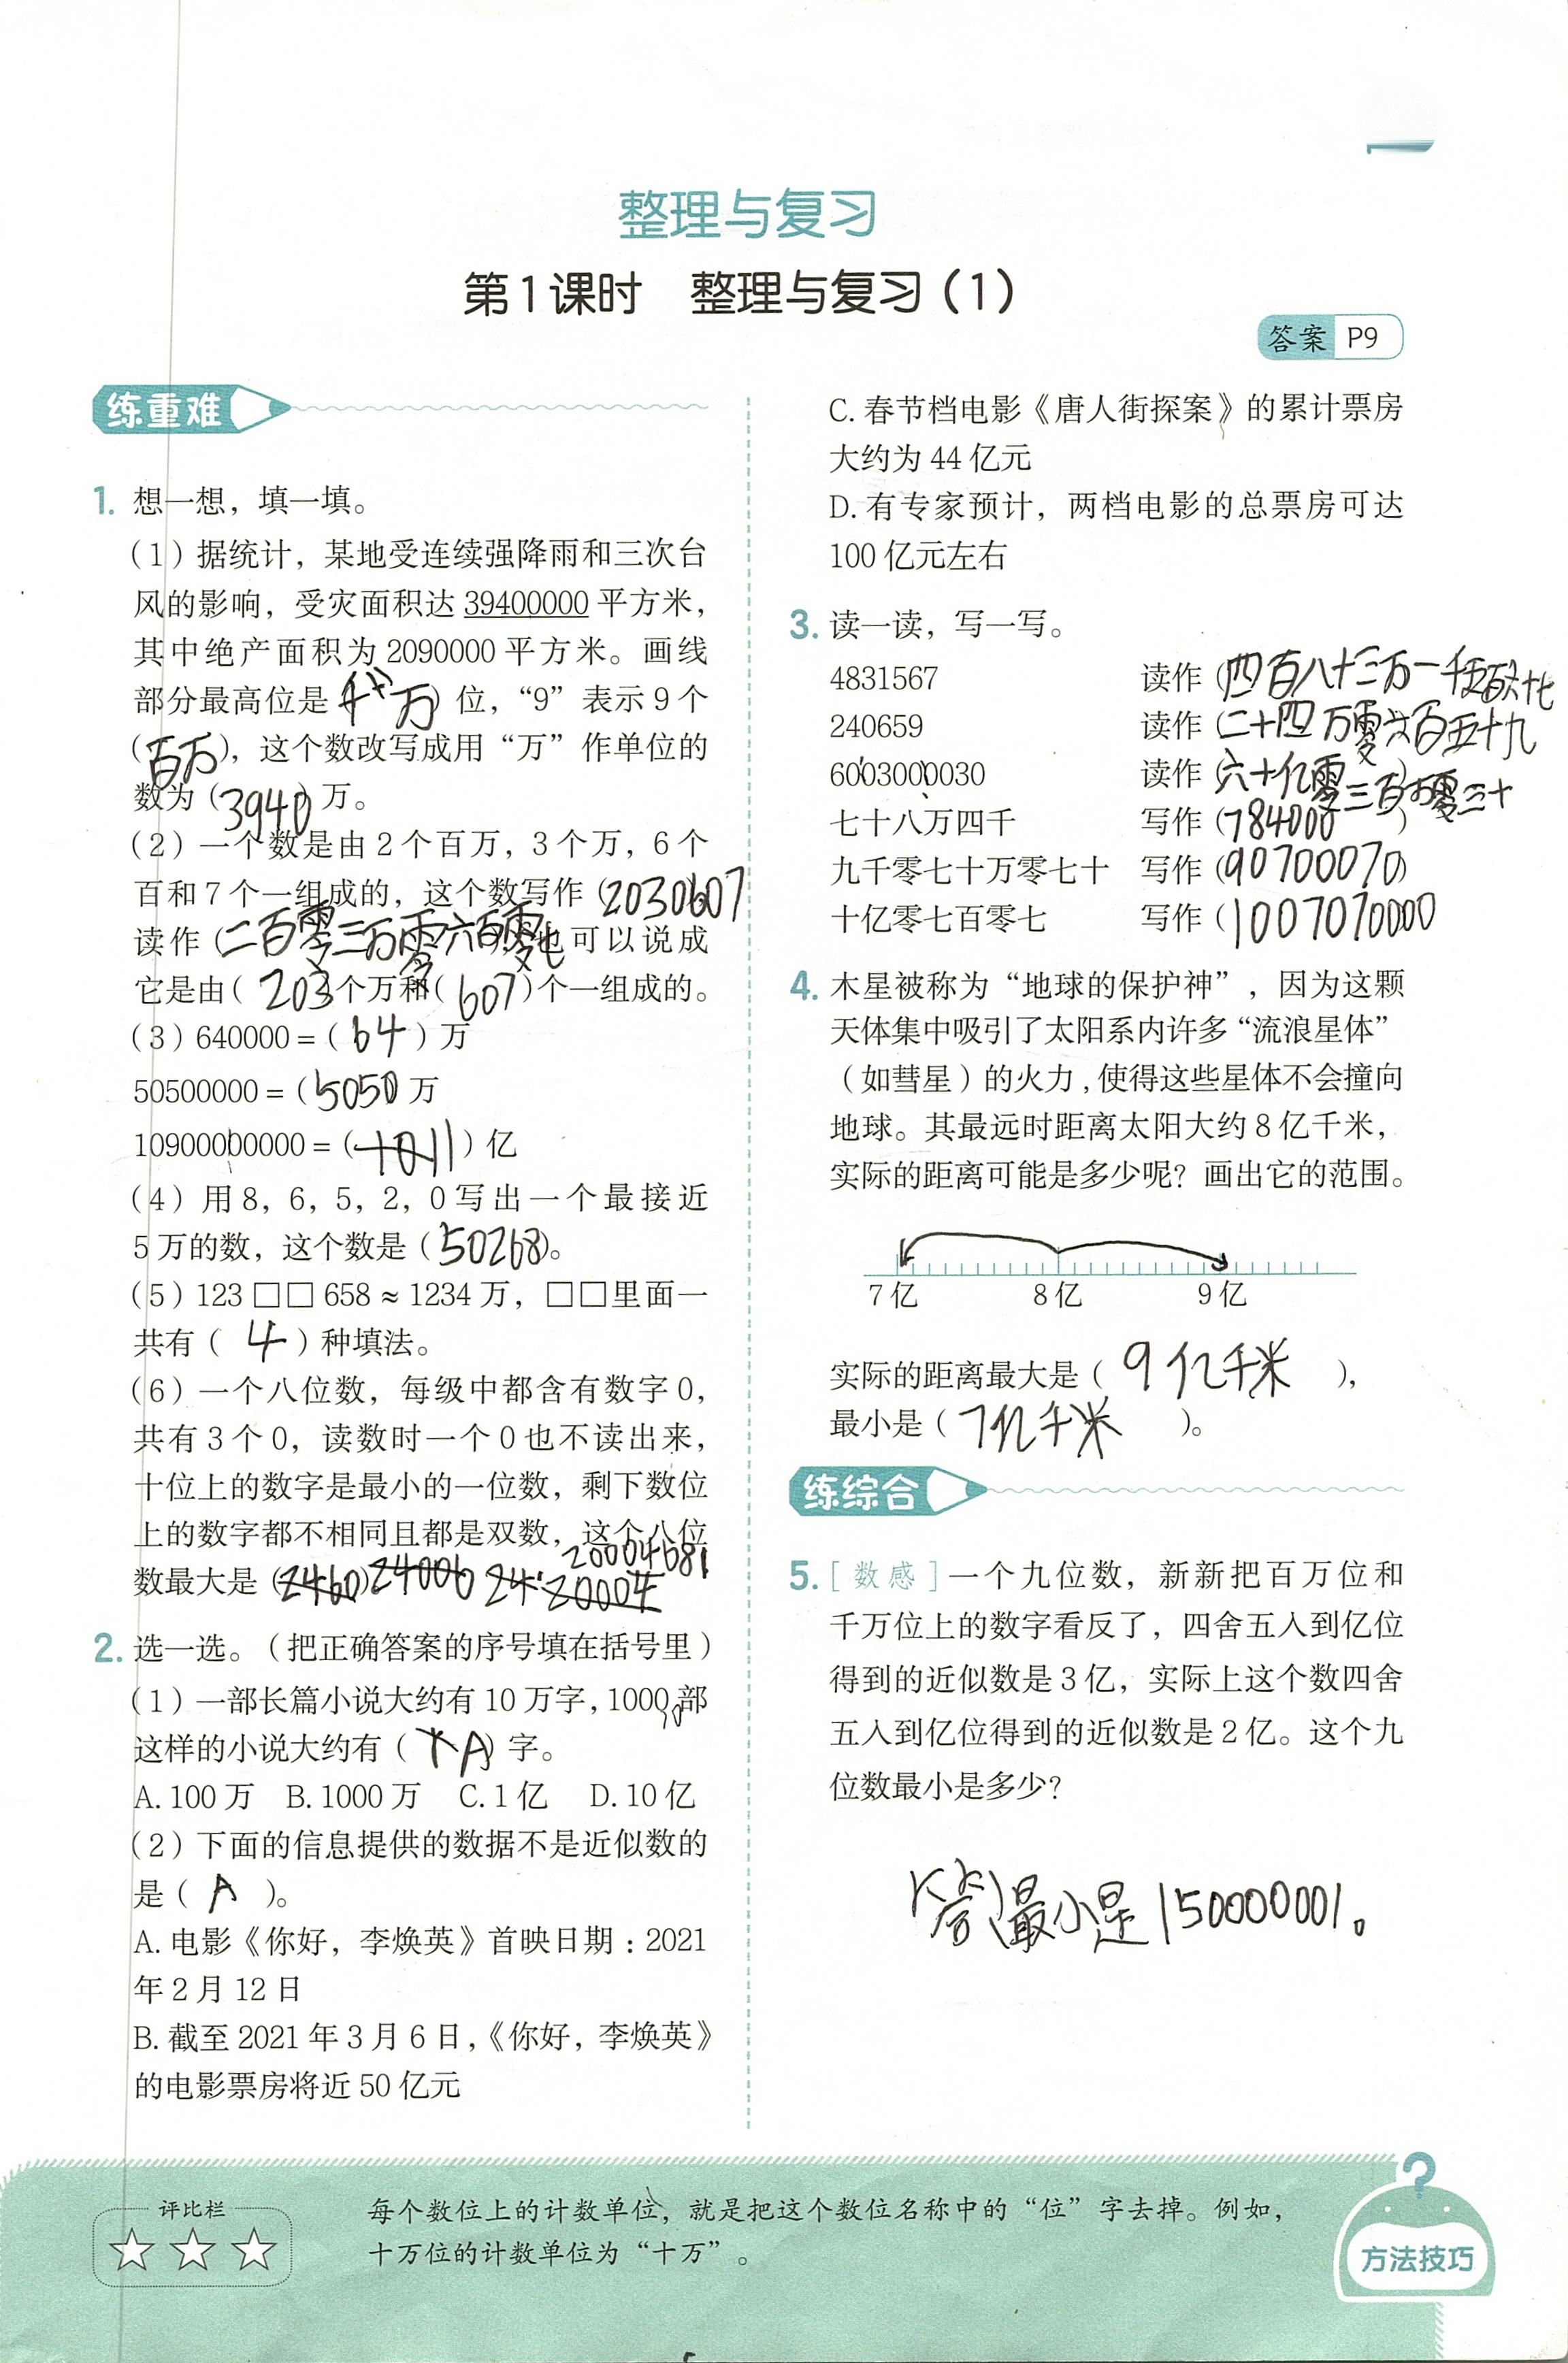 整理与复习
第1课时 整理与复习（1）
答案 P9
练重难
1. 想一想，填一填。
（1）据统计，某地受连续强降雨和三次台
风的影响，受灾面积达 39400000 平方米，
其中绝产面积为 2090000 平方米。画线
部分最高位是（千万）位，“9”表示9个
（百万），这个数改写成用“万”作单位的
数为（3940）万。
（2）一个数是由2个百万，3个万，6个
百和7个一组成的，这个数写作（2030607
读作（二百零三万零六百零七也可以说成
它是由（203个万和（607）个一组成的。
（3）640000=（64）万
50500000=（5050 万
10900000000=（1011）亿
（4）用8，6，5，2，0写出一个最接近
5万的数，这个数是（50268）。
（5）123□□658≈1234万，□□里面一
共有（4）种填法。
（6）一个八位数，每级中都含有数字0，
共有3个0，读数时一个0也不读出来，
十位上的数字是最小的一位数，剩下数位
上的数字都不相同且都是双数，这个八位
20004681
数最大是（2460）24006 24 20004
2. 选一选。（把正确答案的序号填在括号里）
（1）一部长篇小说大约有10万字，1000部
这样的小说大约有（A）字。
A. 100万 B. 1000万 C. 1亿 D. 10亿
（2）下面的信息提供的数据不是近似数的
是（A）。
A. 电影《你好，李焕英》首映日期：2021
年2月12日
B. 截至2021年3月6日，《你好，李焕英》
的电影票房将近50亿元
C. 春节档电影《唐人街探案》的累计票房
大约为44亿元
D. 有专家预计，两档电影的总票房可达
100亿元左右
3. 读一读，写一写。
4831567 读作（四百八十三万一千五百六十七
240659 读作（二十四万零六百五十九
6003000030 读作（六十亿零三百万零三十
七十八万四千 写作（784000）
九千零七十万零七十 写作（90700070）
十亿零七百零七 写作（1007070000
4. 木星被称为“地球的保护神”，因为这颗
天体集中吸引了太阳系内许多“流浪星体”
（如彗星）的火力，使得这些星体不会撞向
地球。其最远时距离太阳大约8亿千米，
实际的距离可能是多少呢？画出它的范围。
7亿 8亿 9亿
实际的距离最大是（9亿千米），
最小是（7亿千米）。
练综合
5. [数感]一个九位数，新新把百万位和
千万位上的数字看反了，四舍五入到亿位
得到的近似数是3亿，实际上这个数四舍
五入到亿位得到的近似数是2亿。这个九
位数最小是多少？
答最小是150000001。
评比栏
每个数位上的计数单位，就是把这个数位名称中的“位”字去掉。例如，
十万位的计数单位为“十万”。
方法技巧